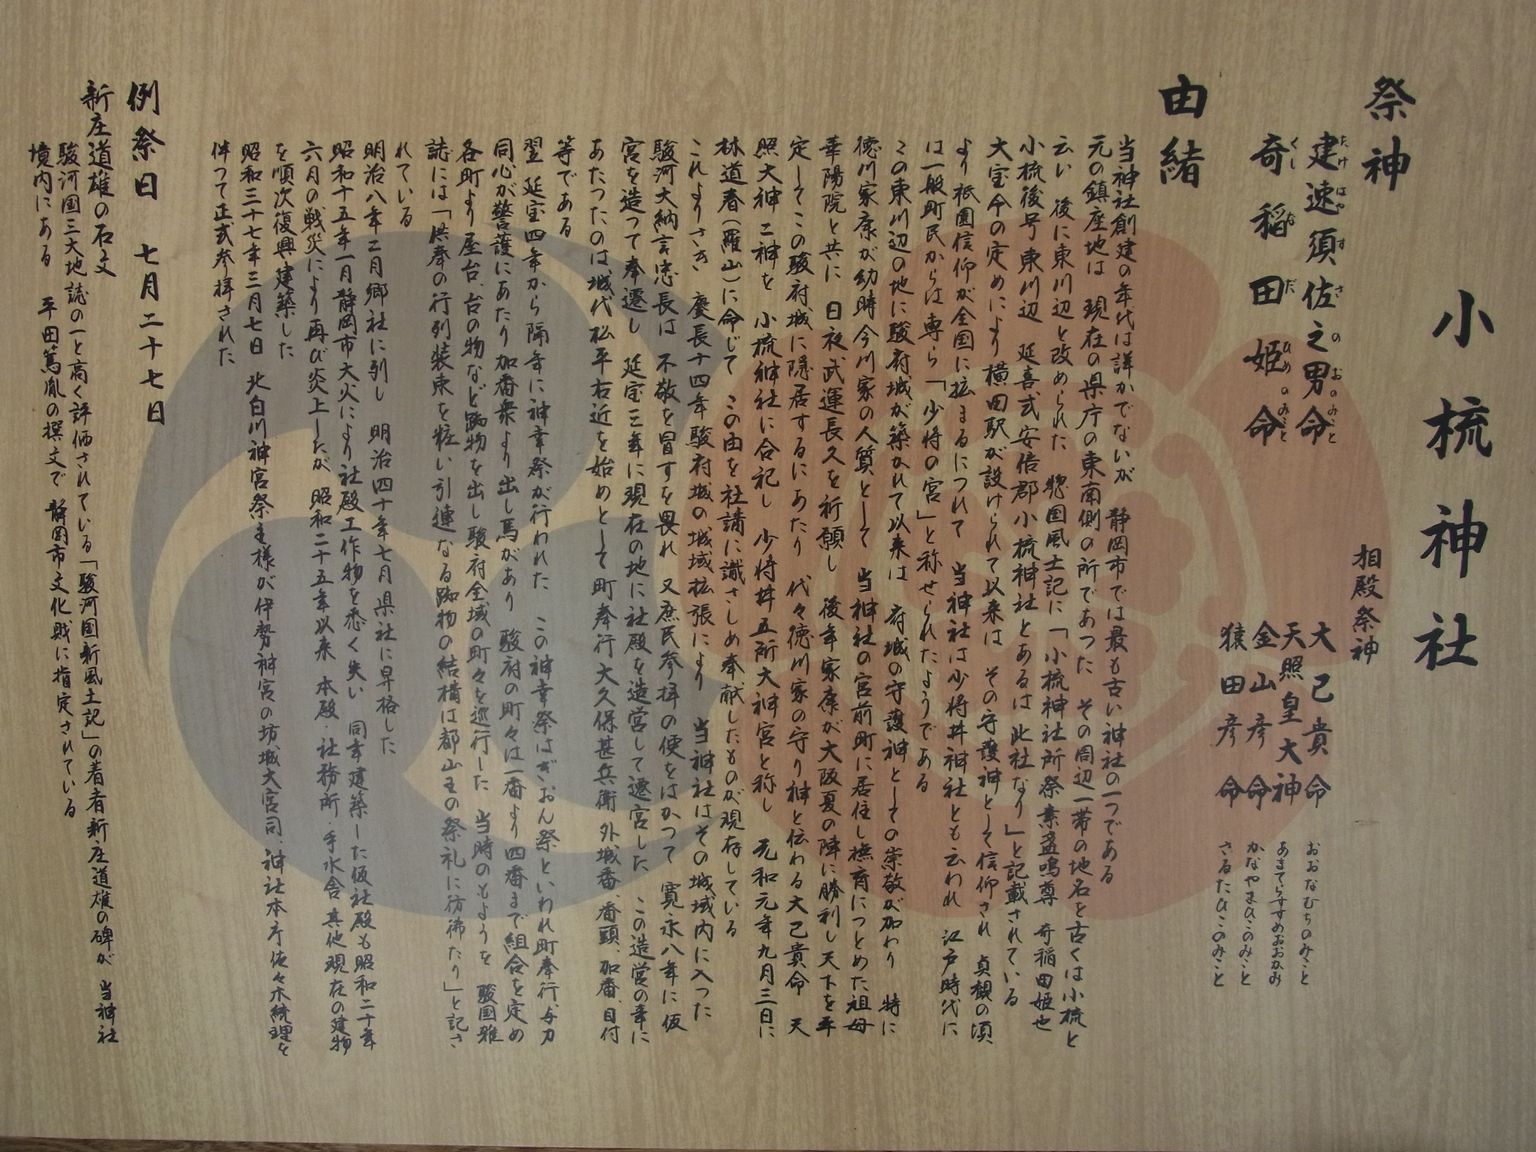 小梳神社
祭神
建速須佐之男命
たけはやすさのおのみこと
奇稲田姫命
くしなだひめのみこと
相殿祭神
大己貴命 おおなむちのみこと
天照皇大神 あまてらすすめおおかみ
金山彦命 かなやまひこのみこと
猿田彦命 さるたひこのみこと
由緒
当神社創建の年代は詳かでないが 静岡市では最も古い神社の一つである
元の鎮座地は 現在の県庁の東南側の所であつた その周辺一帯の地名を古くは小梳と
云い 後に東川辺と改められた 惣国風土記に「小梳神社所祭素盞嗚尊 奇稲田姫也
小梳後号東川辺 延喜式安倍郡小梳神社とあるは此社なり」と記載されている
大宝令の定めにより 横田駅が設けられて以来は その守護神として信仰され 貞観の頃
より祇園信仰が全国に拡まるにつれて 当神社は少将井神社とも云われ 江戸時代に
は一般町民からは専ら「少将の宮」と称せられたようである
この東川辺の地に駿府城が築かれて以来は 府城の守護神としての崇敬が加わり 特に
徳川家康が幼時今川家の人質として 当神社の宮前町に居住し撫育につとめた祖母
華陽院と共に 日夜武運長久を祈願し 後年家康が大阪夏の陣に勝利し天下を平
定してこの駿府城に隠居するにあたり 代々徳川家の守り神と伝わる大己貴命 天
照大神二神を 小梳神社に合祀し 少将井五所大神宮と称し 元和元年九月三日に
林道春(羅山)に命じて この由を社請に識さしめ奉献したものが現存している
これよりさき 慶長十四年駿府城の城域拡張により 当神社はその城域内に入つた
駿河大納言忠長は 不敬を冒すを畏れ 又庶民参拝の便をはかつて 寛永八年に仮
宮を造つて奉遷し 延宝三年に現在の地に社殿を造営して遷宮した この造営の幸に
あたつたのは城代松平右近を始めとして町奉行大久保甚兵衛 外城番、番頭、加番、目付
等である
翌 延宝四年から隔年に神幸祭が行われた この神幸祭はぎおん祭といわれ町奉行与力
同心が警護にあたり加番衆より出し馬があり 駿府の町々は一番より四番まで組合を定め
各町より屋台、台の物など踟物を出し駿府全域の町々を巡行した 当時のもようを 駿国雅
誌には「供奉の行列装束を粧い引連なる踟物の結構は都山王の祭礼に彷彿たり」と記さ
れている
明治八年二月郷社に列し 明治四十年七月県社に昇格した
昭和十五年一月静岡市大火により社殿工作物を悉く失い 同年建築した仮社殿も昭和二十年
六月の戦災により再び炎上したが 昭和二十五年以来 本殿 社務所・手水舎其他現在の建物
を順次復興建築した
昭和三十七年三月七日 北白川神宮祭主様が伊勢神宮の坊城大宮司、神社本庁佐々木統理を
伴つて正式参拝された
例祭日 七月二十七日
新庄道雄の石文
駿河国三大地誌の一と高く評価されている「駿河国新風土記」の著者新庄道雄の碑が 当神社
境内にある 平田篤胤の撰文で 静岡市文化財に指定されている